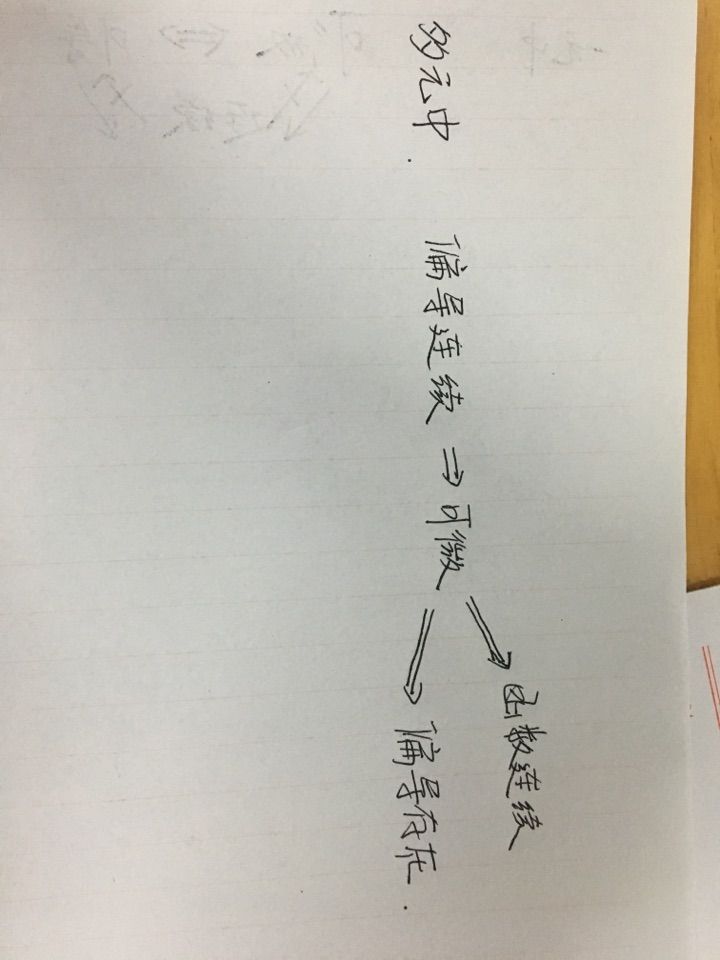 多元中.
偏导连续 ⇒ 可微
⇒ 函数连续
⇒ 偏导存在.